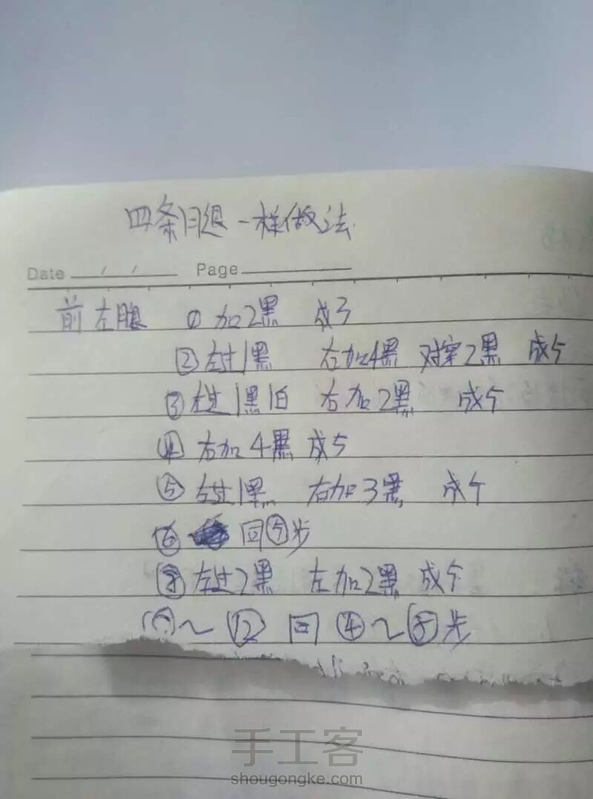 四条腿一样做法
Date / / Page
前左腿 ① 加2黑 成3
②左过1黑 右加4黑 对穿2黑 成5
③左过1黑1白 右加2黑 成5
④ 右加4黑 成5
⑤ 左过1黑 右加3黑 成5
⑥ 回⑤步
左过2黑 左加2黑 成5
～⑫ 回④～⑧步
手工客
shougongke.com